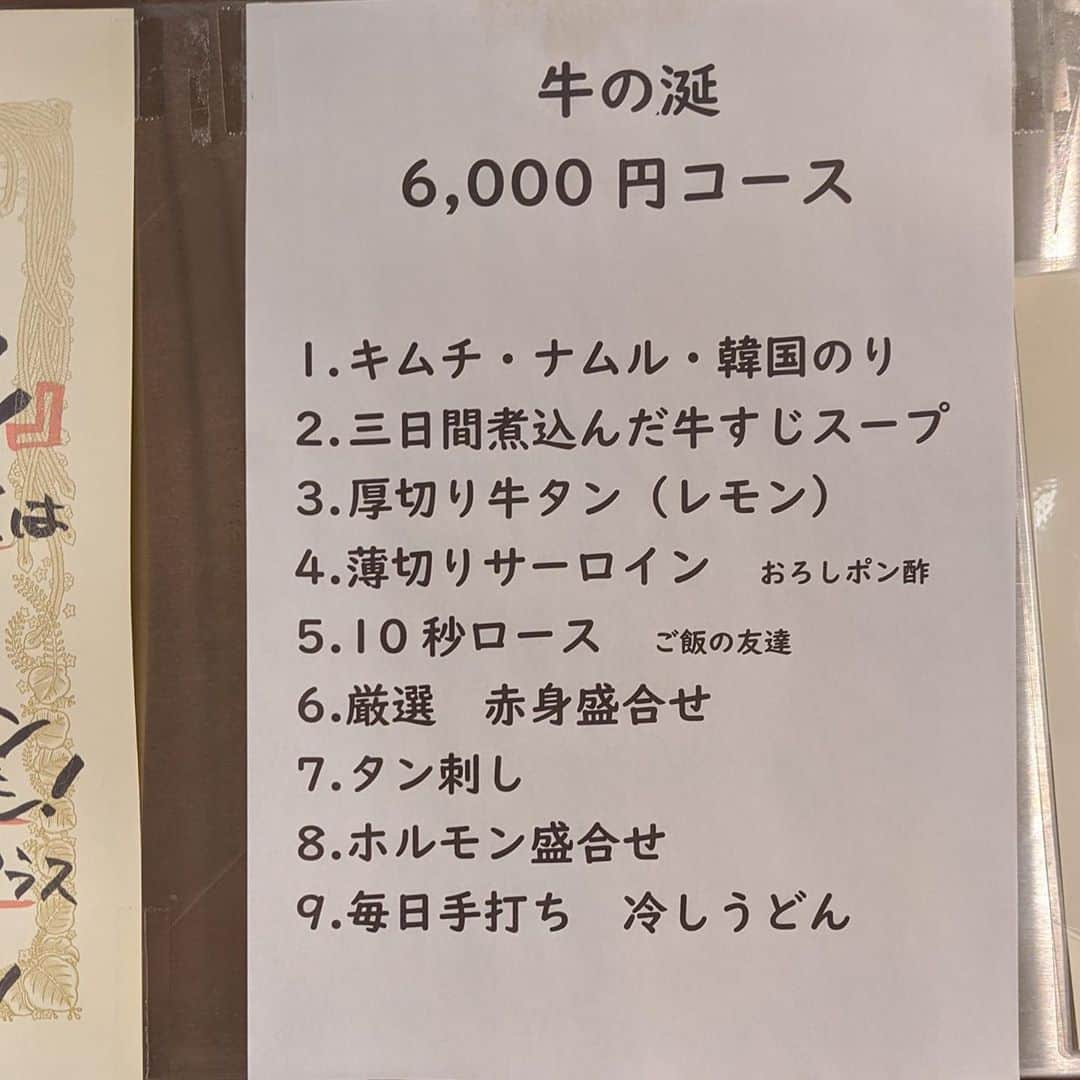 牛の涎
6,000円コース
1.キムチ・ナムル・韓国のり
2.三日間煮込んだ牛すじスープ
3.厚切り牛タン（レモン）
4.薄切りサーロイン　おろしポン酢
5.10秒ロース　ご飯の友達
6.厳選　赤身盛合せ
7.タン刺し
8.ホルモン盛合せ
9.毎日手打ち　冷しうどん
は